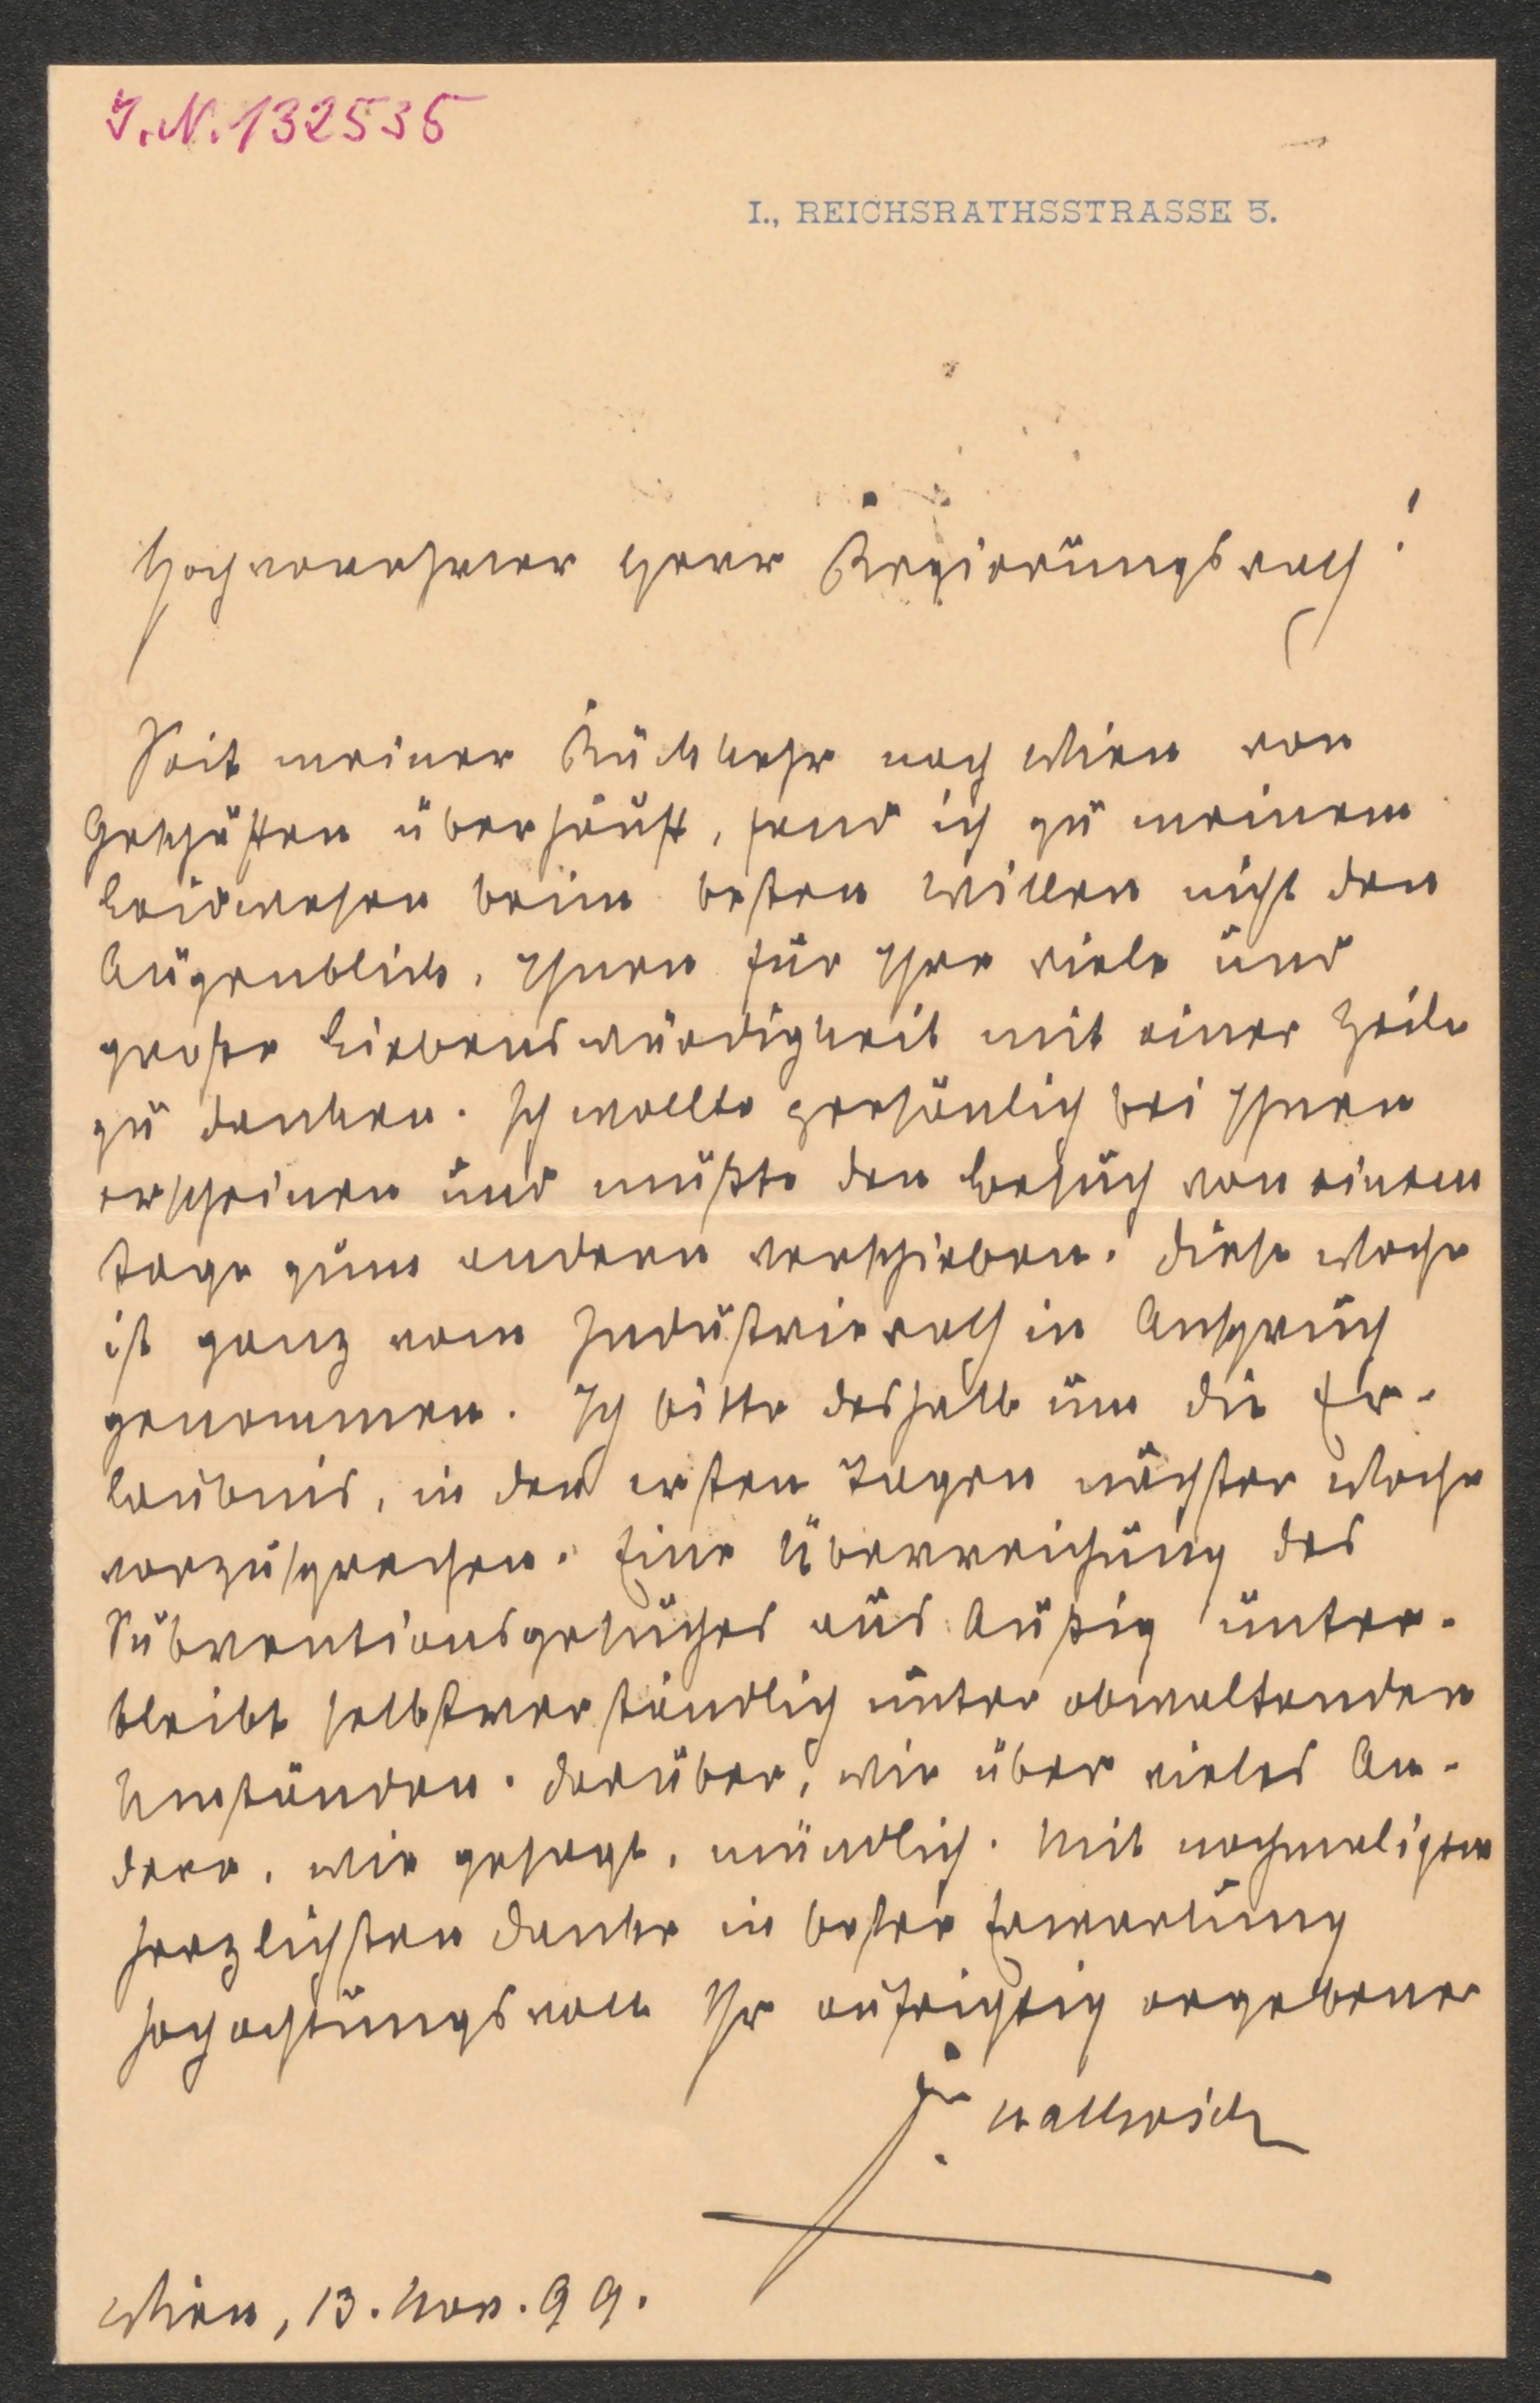 I.N. 132535
I., REICHSRATHSSTRASSE 5.
Hochverehrter Herr Regierungsrath!
Seit meiner Rückkehr nach Wien von
Geschäften überhäuft, fand ich zu meinem
Leidwesen beim besten Willen nicht den
Augenblick, Ihnen für Ihre viele und
große Liebenswürdigkeit mit einer Zeile
zu danken. Ich wollte persönlich bei Ihnen
erscheinen und mußte den Besuch von einem
Tage zum andern verschieben. Diese Woche
ist ganz vom Industrierath in Anspruch
genommen. Ich bitte deshalb um die Er-
laubnis, in den ersten Tagen nächster Woche
vorzusprechen. Eine Überreichung des
Subventionsgesuches aus Außig unter-
bleibt selbstverständlich unter obwaltenden
Umständen. Darüber, wie über vieles An-
dere, wie gesagt, mündlich. Mit nochmaligem
herzlichsten Danke in bester Erwartung
hochachtungsvoll Ihr aufrichtig ergebener
Wien, 13. Nov. 99.